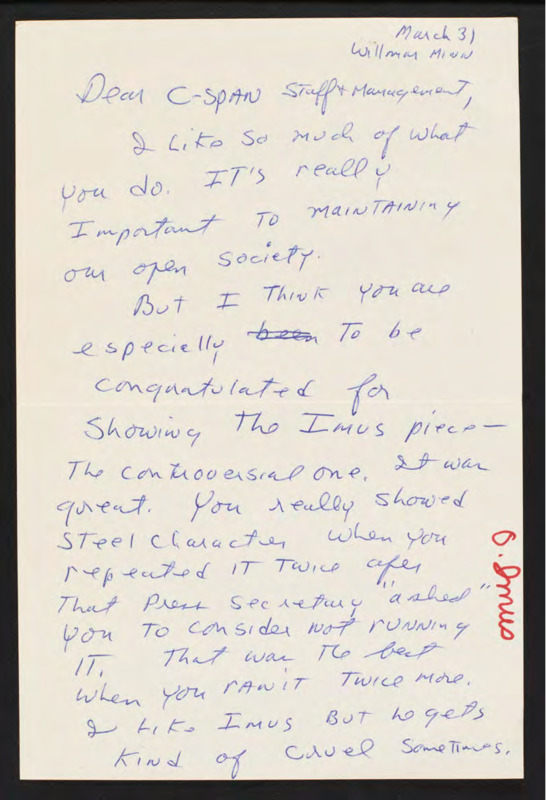 March 31
Willmar Minn
Dear C-SPAN Staff & Management,
I Like so much of what
you do. IT's really
Important To maintaining
our open society.
But I Think you are
especially been To be
congratulated for
Showing The Imus piece—
The controversial one. It was
great. You really showed
Steel Character when you
repeated IT Twice after
That Press Secretary "asked"
you To consider not running
IT. That was The best
when you ran iT Twice more.
I Like Imus But he gets
Kind of cruel sometimes.
Imus